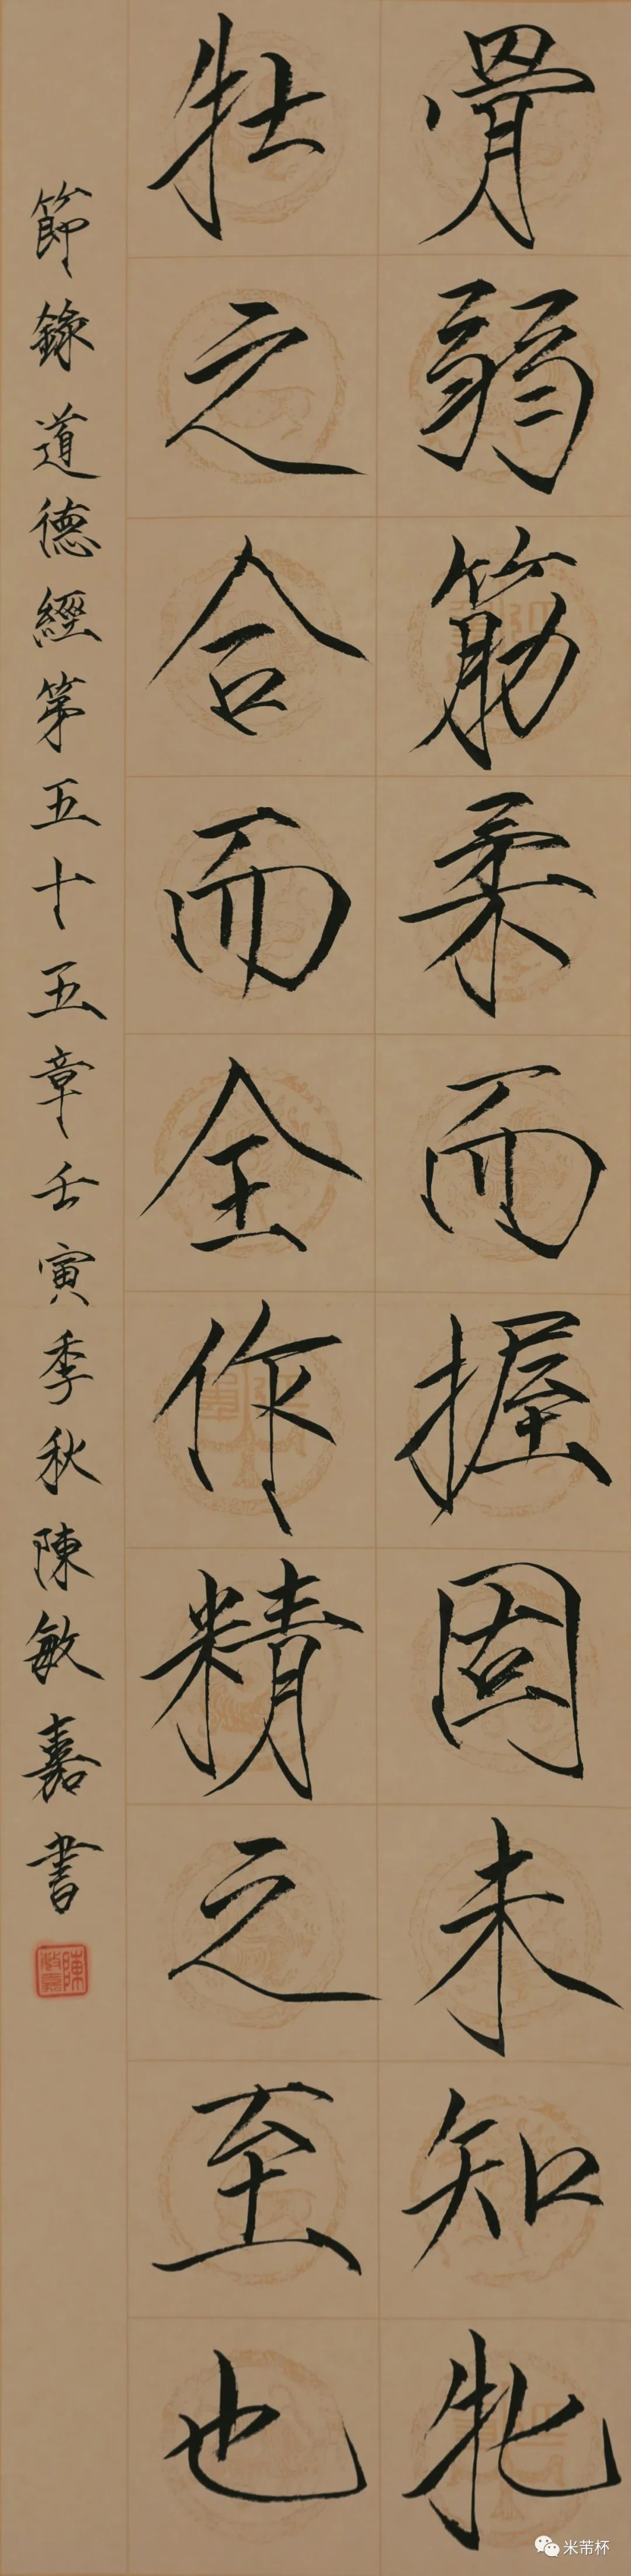 骨弱筋柔而握固未知牝
牡之合而全作精之至也
節錄道德經第五十五章壬寅季秋陳敏嘉書
陳敏嘉
米芾杯